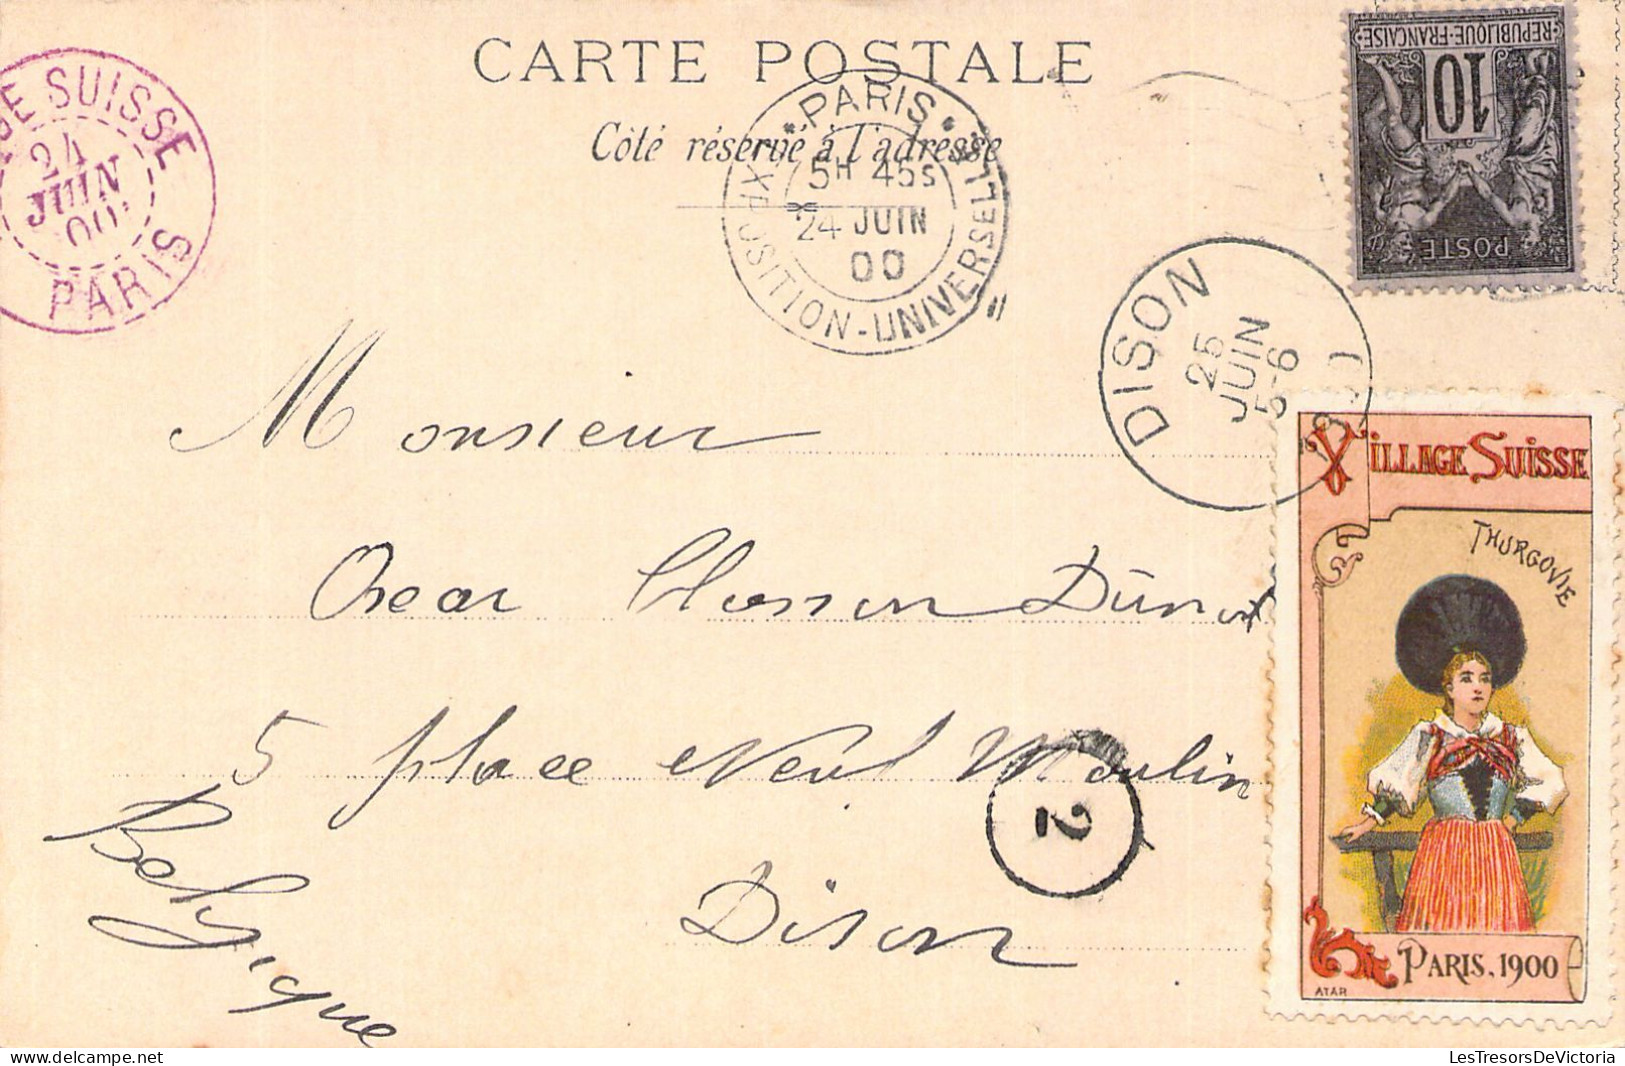 CARTE POSTALE
Côté réservé à l'adresse
GE SUISSE
24
JUIN
00
PARIS
PARIS
EXPOSITION-UNIVERSELLE
5H 45S
24 JUIN
00
RÉPUBLIQUE-FRANÇAISE
10
POSTE
DISON
25
JUIN
5-6
Monsieur
Oscar
5 place Neuf Moulin
Dison
Belgique
2
VILLAGE SUISSE
THURGOVIE
PARIS. 1900
ATAR
LesTresorsDeVictoria